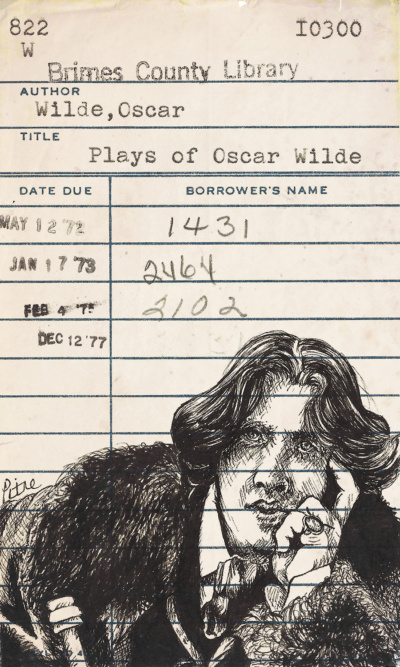 822 10300
W
Brimes County Library
AUTHOR
Wilde, Oscar
TITLE
Plays of Oscar Wilde
DATE DUE BORROWER'S NAME
MAY 12 '72 1431
JAN 17 '73 2464
FEB 4 '75 2102
DEC 12 '77
Pitre